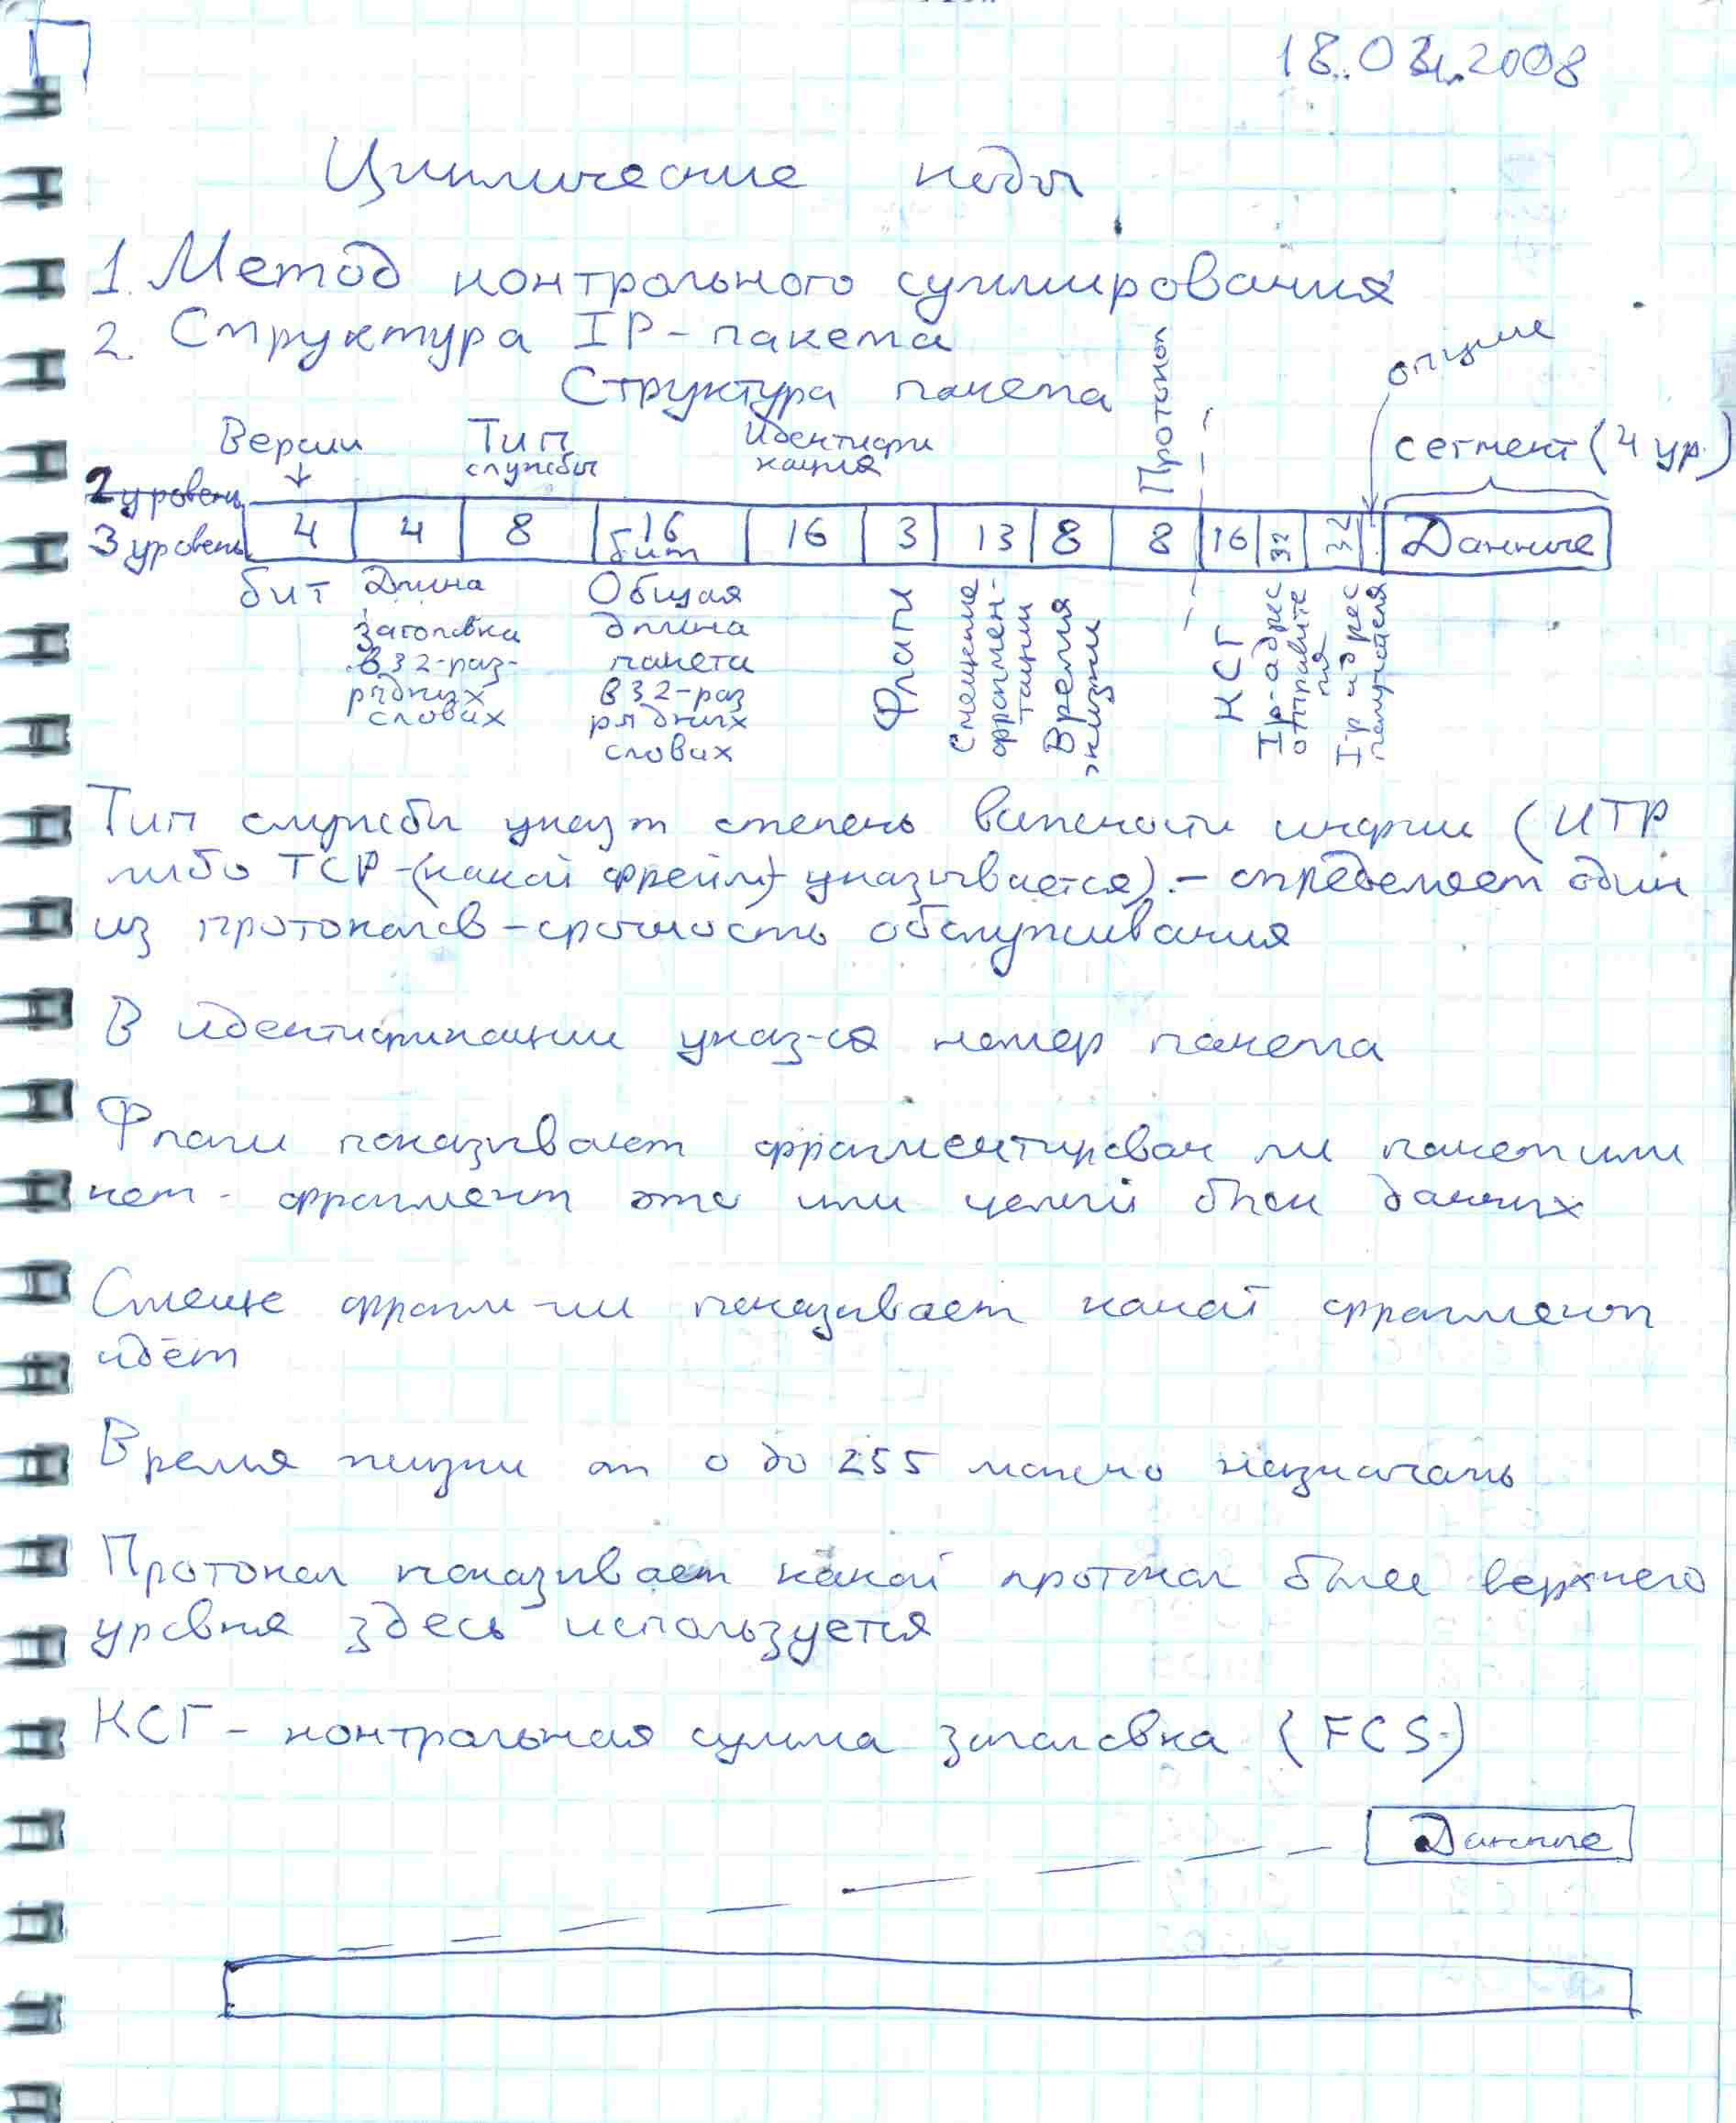 18.04.2008
Циклические коды
1. Метод контрольного суммирования
2. Структура IP-пакета
Структура пакета
Версии
Тип службы
Идентифи
кация
Протокол
опции
сегмент (4 ур.)
2 уровень
3 уровень
4 4 8 16 бит 16 3 13 8 8 16 32 32 Данные
бит
Длина
заголовка
в 32-раз-
рядных
словах
Общая
длина
пакета
в 32-раз
рядных
словах
Флаги
Смещение
фрагмен-
тации
Время
жизни
КСГ
Ip-адрес
отправите
ля
Ip адрес
получателя
Тип службы указт степень важности инфции (ИТР
либо TCP-(какой фрейм) указывается) - определяет один
из протоколов - срочность обслуживания
В идентификации указ-ся номер пакета
Флаги показывает фрагментирован ли пакет или
нет - фрагмент это или целый блок данных
Смеще фрагм-ии показывает какой фрагмент
идёт
Время жизни от 0 до 255 можно назначать
Протокол показывает какой протокол более верхнего
уровня здесь используется
КСГ - контрольная сумма заголовка (FCS)
Данные